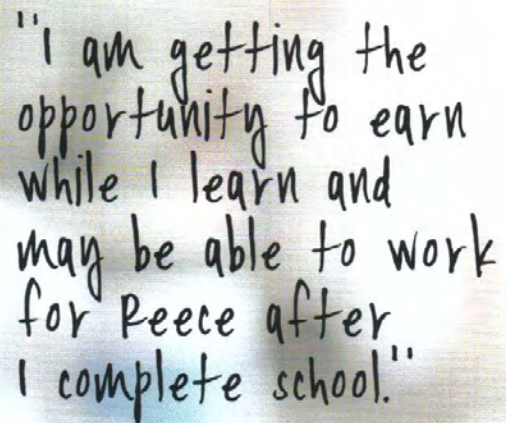 "I am getting the
opportunity to earn
while I learn and
may be able to work
for Reece after
I complete school."